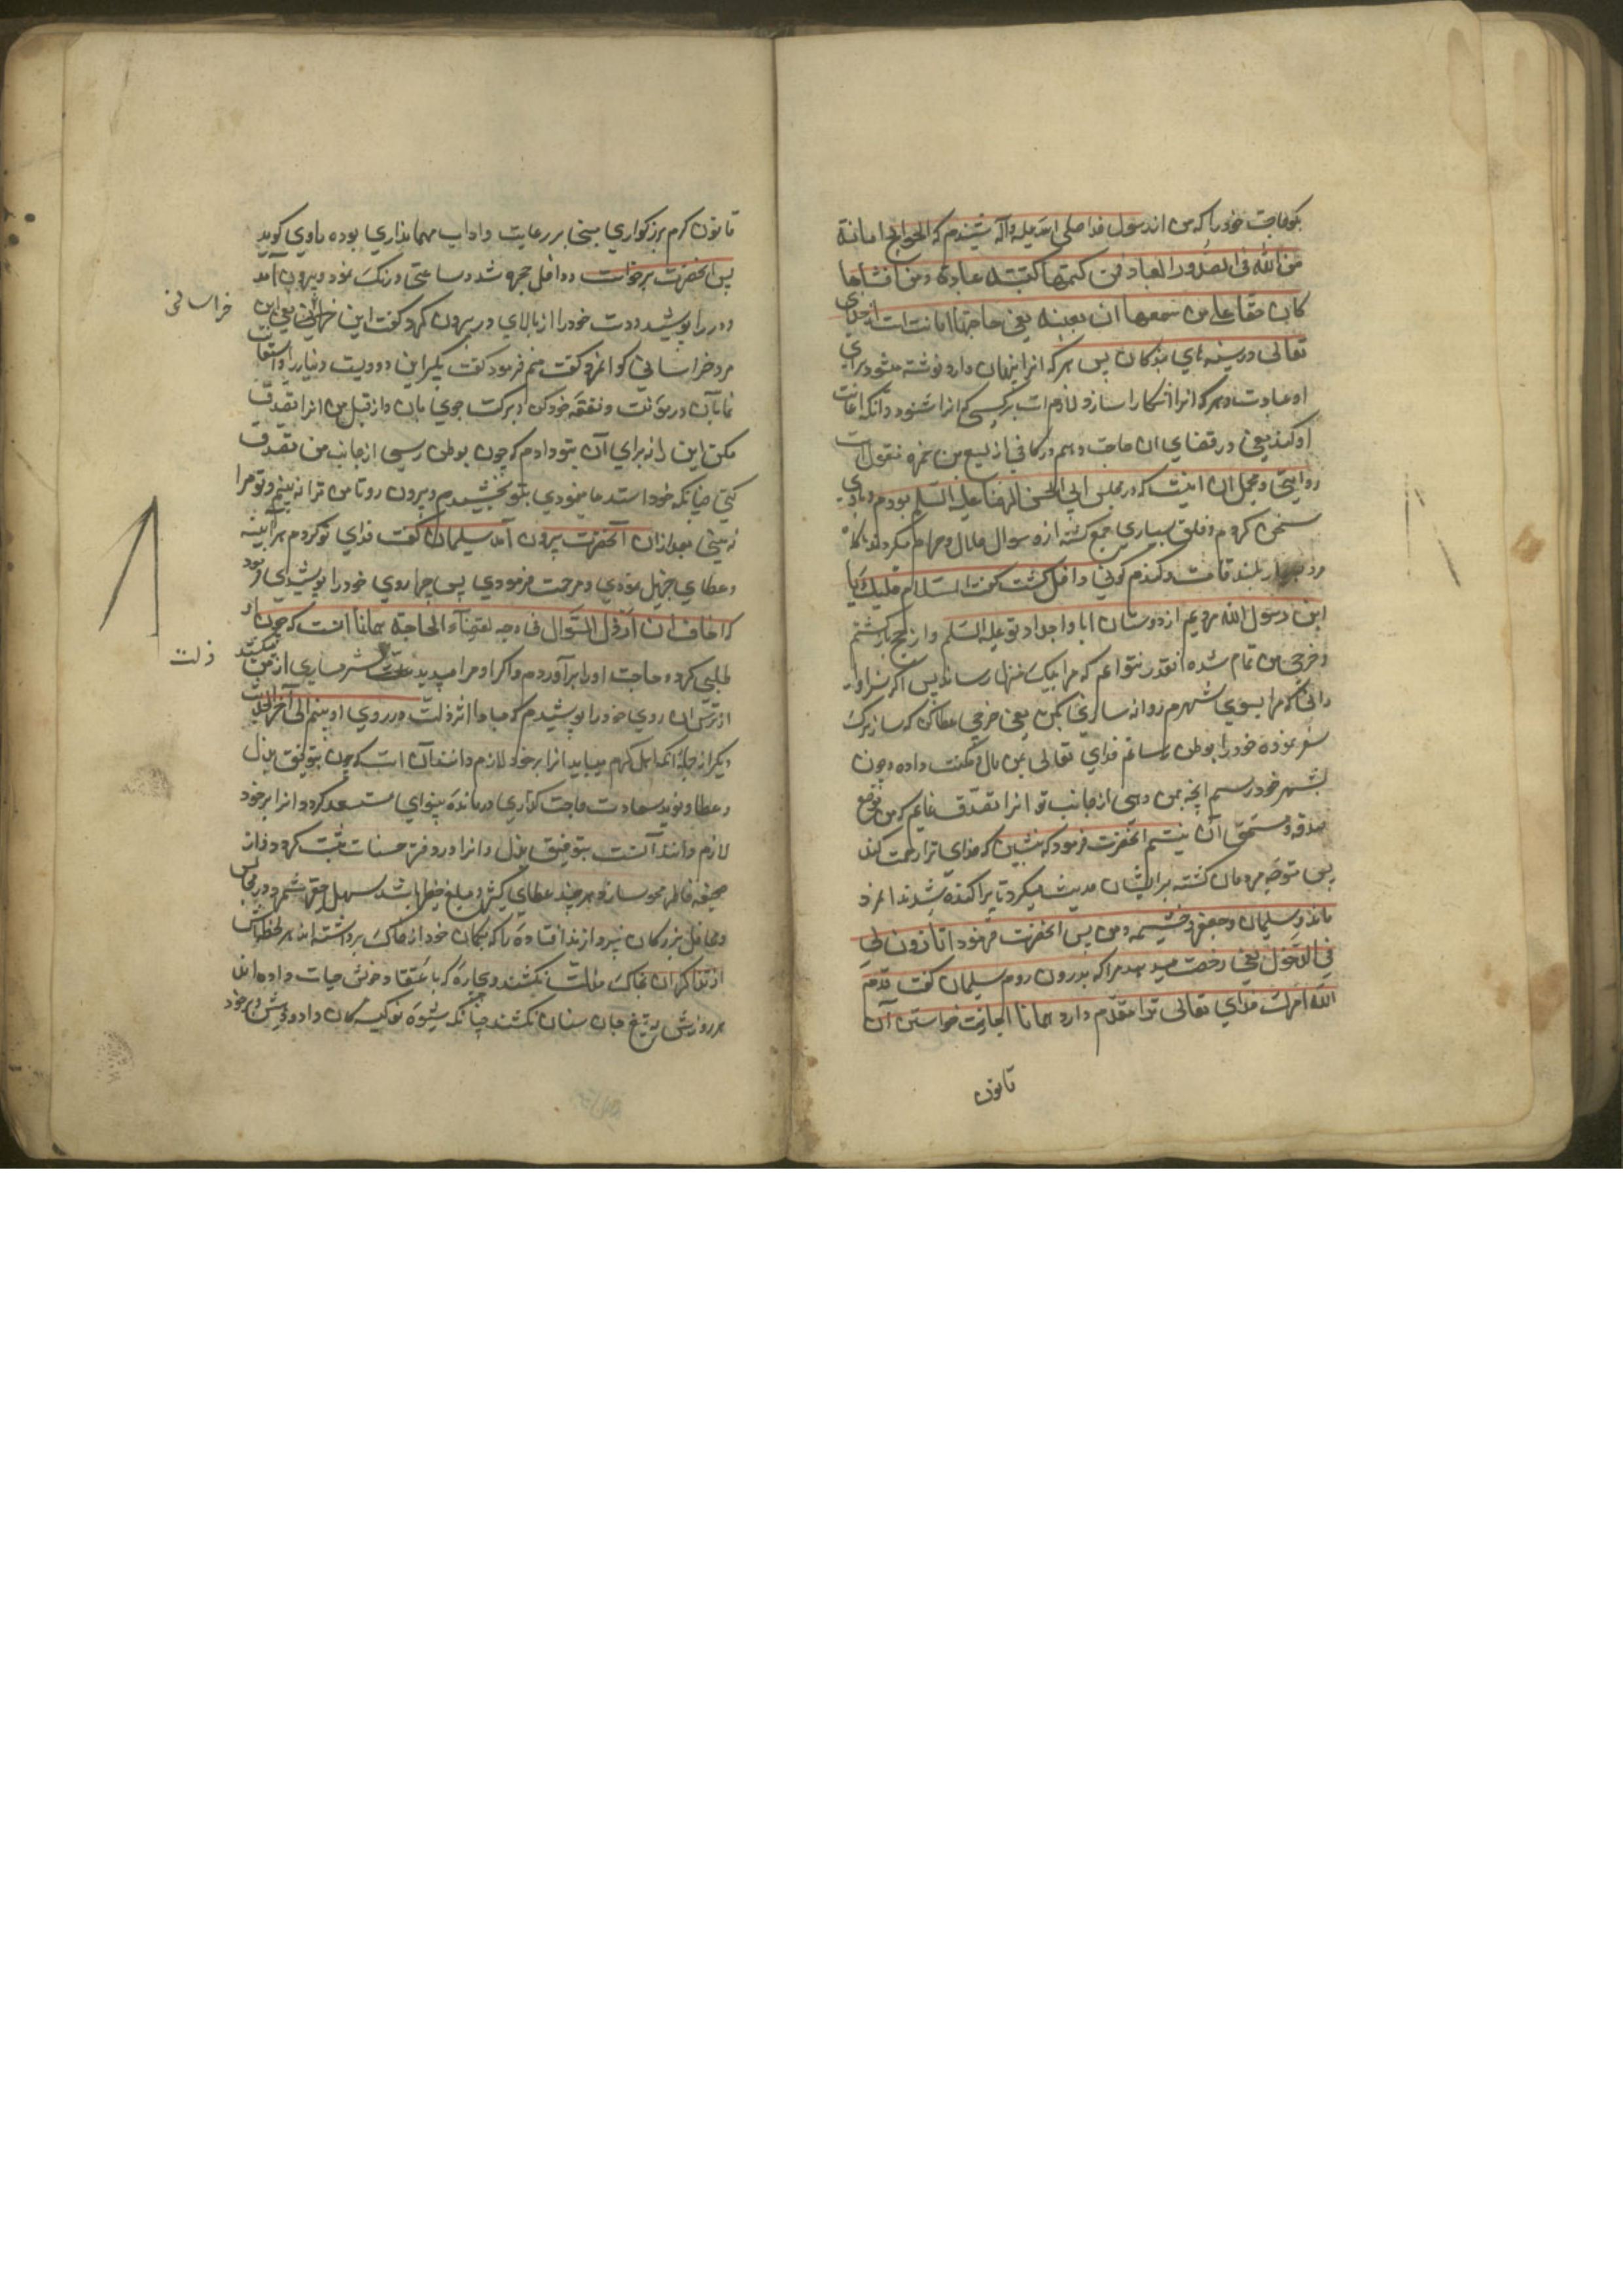 بکو حاجت خود را که من از رسول خدا صلی الله علیه وآله شنیدم که الحوایج امانة
من الله فی الصدور العباد فمن کتمها کتبت له عبادة و من افشاها
کان حقا علی من سمعها ان یعینه یعنی حاجتها امانت است از خدای
تعالی در سینه های بندکان پس هر که انرا پنهان دارد نوشته میشود برای
او عبادت و هر که انرا اشکارا سازد لازم است بر کسی که انرا شنود و انکه اعانت
او کند یعنی در قضای ان حاجت و هم در کافی از یسع بن حمزه منقول است
روایتی و مجمل ان اینست که در مجلس ابی الحسن الرضا علیه السلم بودم و با وی
سخن کردم و خلق بسیاری جمع کشته ازو سوال حلال و حرام میکردند ناکاه
مرد بلند قامت و کندم کونی داخل کشت کفت السلام علیک یا
ابن رسول الله مردیم از دوستان ابا و اجداد تو علیه السلم و از حج بازکشتم
و خرجی من تمام شده انقدر نتوانم که مرا بیک منزل رساند پس اکر سزاوار
دانی که مرا بسوی شهرم روانه سازی یعنی خرجی عطا کن که ساز برک
سفر نموده خود را بوطن رسانم خدای تعالی بمن مال و مکنت داده و چون
بشهر خود رسم انچه بمن دهی از جانب تو انرا تصدق نمایم که من موضع
صدقه و مستحق آن نیستم انحضرت فرمود که بنشین که خدای ترا رحمت کند
پس متوجه مردمان کشته برای ایشان حدیث میکرد تا پراکنده شدند انمرد
ماند و سلیمان و جعفر و خیثمه و من پس انحضرت فرمود اتاذنون لی
فی الدخول یعنی رخصت میدهید مرا که بدرون روم سلیمان کفت قدم
الله امرک خدای تعالی ترا مقدم دارد همانا اجازت خواستن آن
قانون
قانون کرم بزرکواری مبنی بر رعایت و اداب مهمانداری بوده راوی کوید
پس انحضرت برخواست و داخل حجره شد و ساعتی درنک نمود و بیرون آمد
و در را پوشید و دست خود را از بالای در بیرون کرد و کفت این الخراسانی یعنی این
خراسانی
مرد خراسانی کو انمرد کفت منم فرمود کفت بکیر این دوویست دینار را و استعانت
نما بآن در مؤنت و نفقه خود کن و برکت جوی بان و از قبل من انرا تصدق
مکن این را نه برای آن بتو دادم که چون بوطن رسی از جانب من تصدق
کنی چنانکه خود استدعا نمودی بتو بخشیدم و بیرون رو تا من ترا نه بینم و تو مرا
نه بینی بعد از ان آنحضرت بیرون آمد سلیمان کفت فدای تو کردم هر آینه
و عطای جزیل نمودی و مرحمت فرمودی پس چرا روی خود را پوشیدی فرمود
که اخاف ان اری ذل السؤال فی وجهه لقضاء الحاجة همانا انست که چون او
طلبی کرد و حاجت او را برآوردم و اکر او مرا میدید شرمساری از من میکشید
ذلت
از ترس ان روی خود را پوشیدم که مبادا اثر ذلت در روی او بینم الی آخر الحدیث
دیکر از جمله انکه اهل کرم میباید انرا بر خود لازم دانند آن است که چون بتوفیق بذل
و عطا و نوید سعادت حاجت کذاری درمانده بینوای مستسعد کردد انرا بر خود
لازم داند آنست بتوفیق بذل و انرا در دفتر حسنات ثبت کردد و از
صحیفه خاطر محو سازد و هر چند عطای کثیر و مبلغ خطیر باشد سهل و حقیر شمرد و در مجالس
و محافل بزرکان نپردازند افتاده را که بیکبار خود از خاک برداشته اند هر لحظه اش
از تذکر ان بخاک مذلت نکشند و بیچاره که با عتقاد خویش حیات داده اند
هر روزش به تیغ جان ستان نکشند چنانکه شیوه نو کیسه کان داد و دهش بر خود